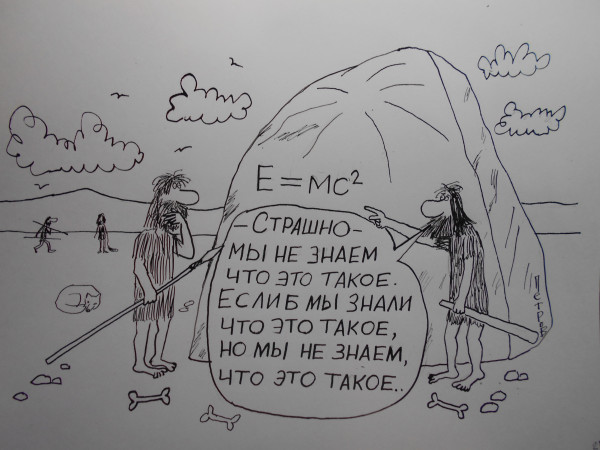 E=MC²
–СТРАШНО–
МЫ НЕ ЗНАЕМ
ЧТО ЭТО ТАКОЕ.
ЕСЛИ Б МЫ ЗНАЛИ
ЧТО ЭТО ТАКОЕ,
НО МЫ НЕ ЗНАЕМ,
ЧТО ЭТО ТАКОЕ..